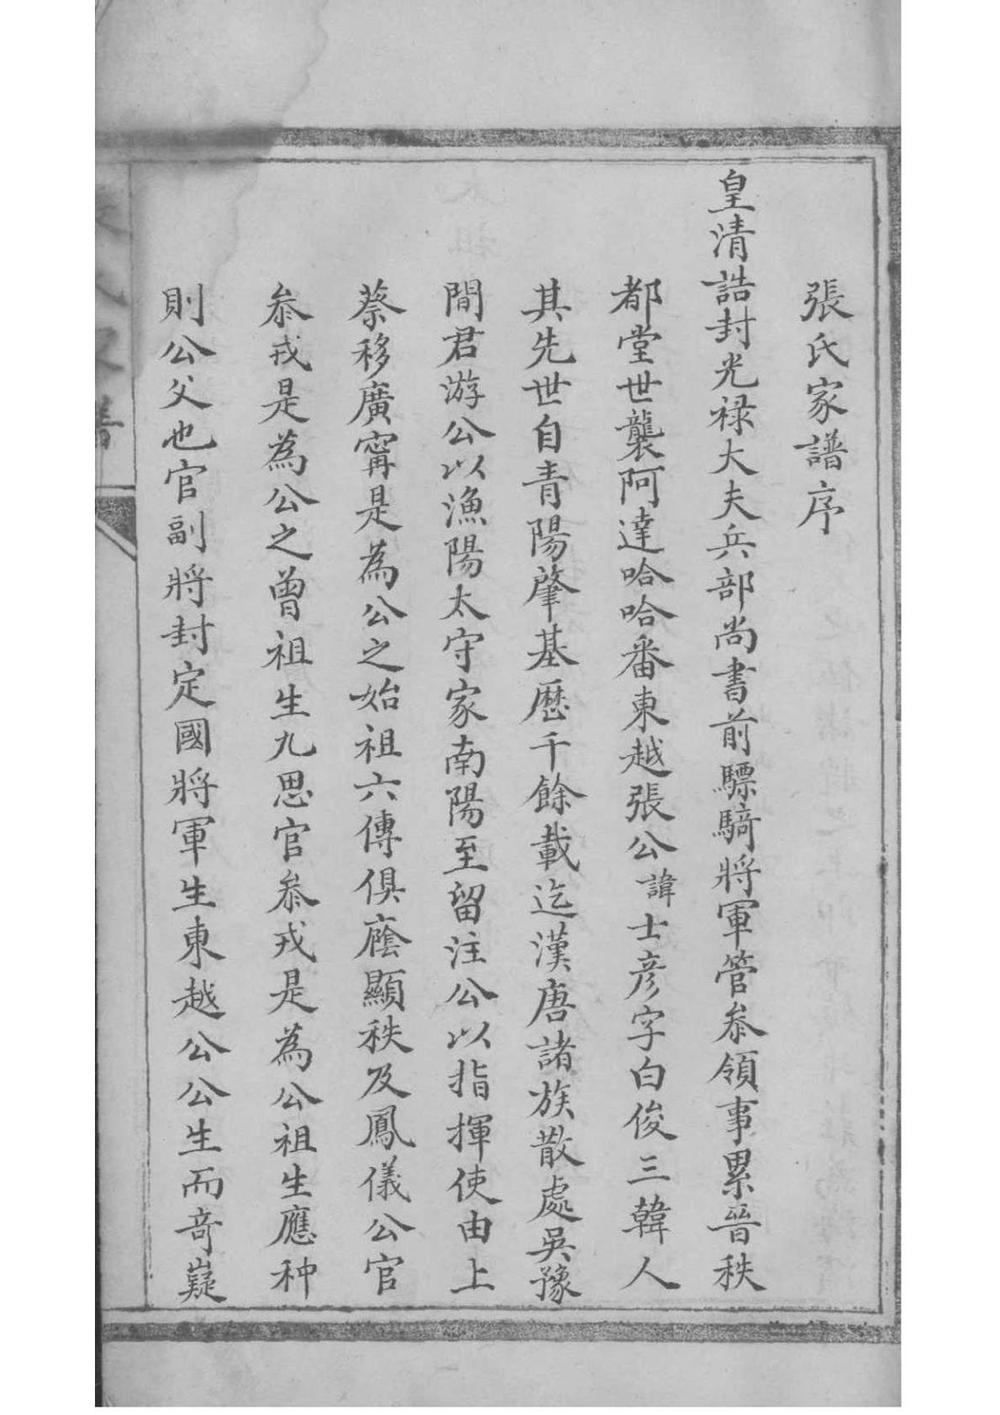 張氏家譜序
皇清誥封光祿大夫兵部尚書前驃騎將軍管叅領事累晉秩
都堂世襲阿達哈哈番東越張公諱士彦字白俊三韓人
其先世自青陽肇基歷千餘載迄漢唐諸族散處吳豫
間君游公以漁陽太守家南陽至留注公以指揮使由上
蔡移廣寗是為公之始祖六傳俱廕顯秩及鳳儀公官
叅戎是為公之曾祖生九思官叅戎是為公祖生應种
則公父也官副將封定國將軍生東越公公生而竒嶷